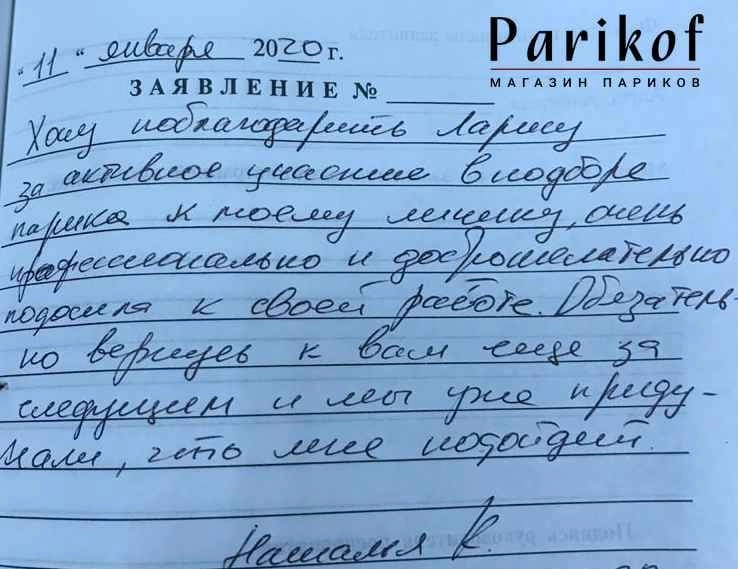 Parikof
МАГАЗИН ПАРИКОВ
"11" января 2020 г.
ЗАЯВЛЕНИЕ №
Хочу поблагодарить Ларису
за активное участие в подборе
парика к моему личику, очень
профессионально и доброжелательно
подошла к своей работе. Обязатель-
но вернусь к вам еще за
следующим и мы уже приду-
мали, что мне подойдет.
Наталья К.